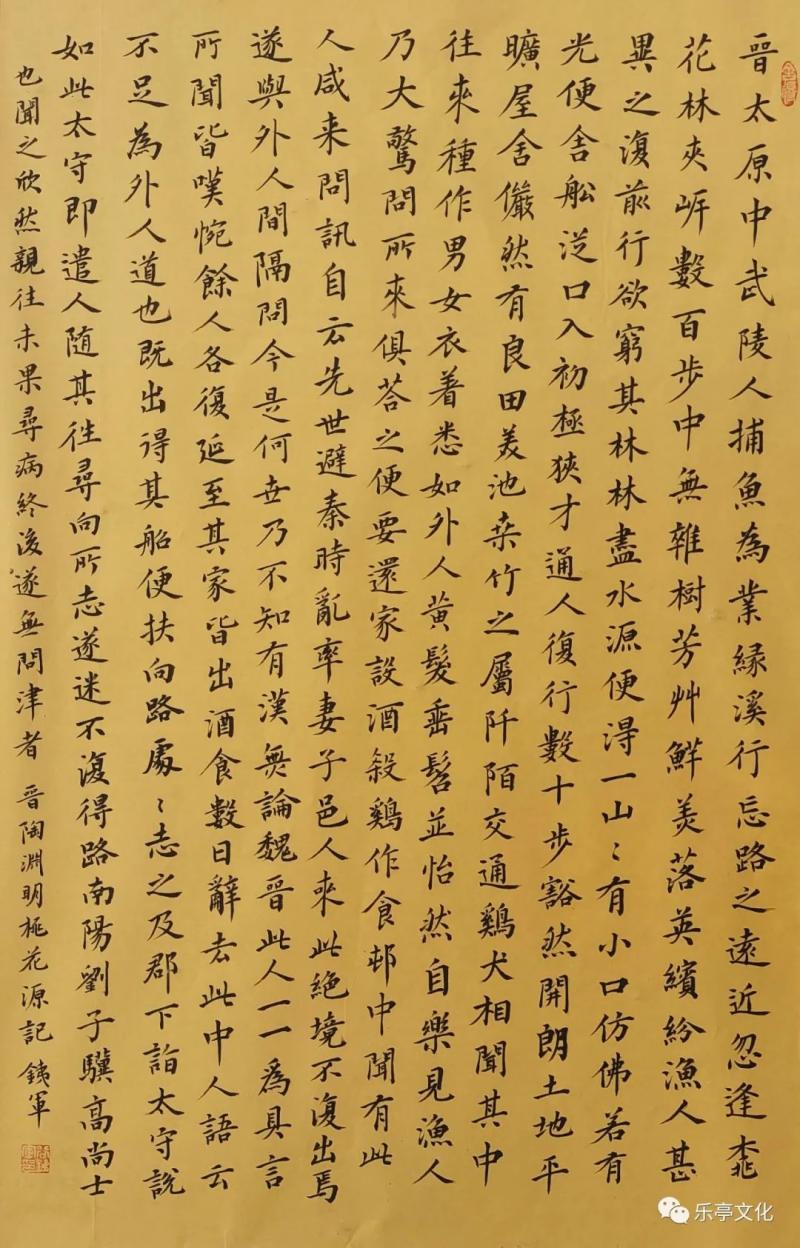 晉太原中武陵人捕魚為業緣溪行忘路之遠近忽逢桃
花林夾岸數百步中無雜樹芳艸鮮美落英繽紛漁人甚
異之復前行欲窮其林林盡水源便得一山〻有小口仿佛若有
光便舍船從口入初極狹才通人復行數十步豁然開朗土地平
曠屋舍儼然有良田美池桑竹之屬阡陌交通鷄犬相聞其中
往來種作男女衣着悉如外人黃髮垂髫並怡然自樂見漁人
乃大驚問所來俱荅之便要還家設酒殺鷄作食邨中聞有此
人咸来問訊自云先世避秦時亂率妻子邑人來此絕境不復出焉
遂與外人間隔問今是何世乃不知有漢無論魏晉此人一一為具言
所聞皆嘆惋餘人各復延至其家皆出酒食數日辭去此中人語云
不足為外人道也既出得其船便扶向路處〻志之及郡下詣太守說
如此太守即遣人随其往尋向所志遂迷不復得路南陽劉子驥高尚士
也聞之欣然親往未果尋病終後遂無問津者 晉陶淵明桃花源記 銕軍
乐亭文化